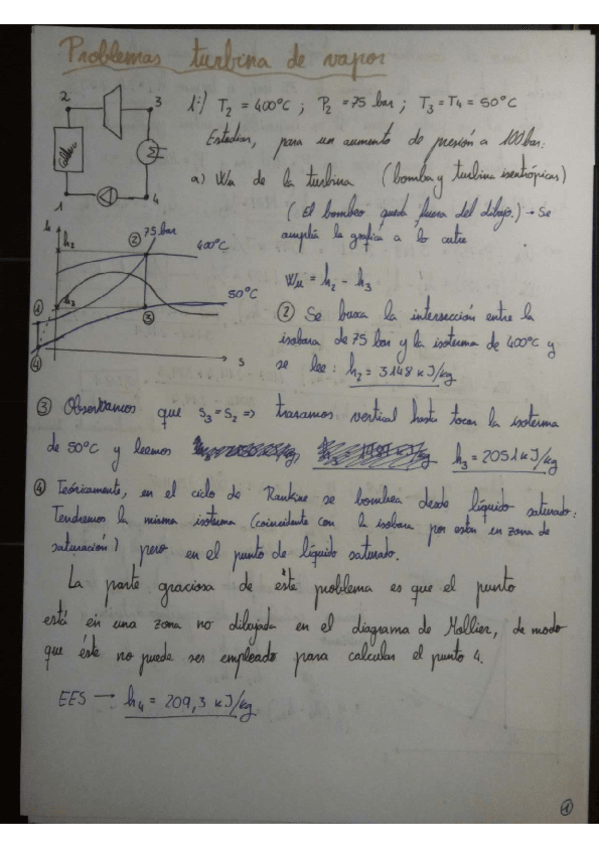 Problemas turbina de vapor
2 3
Caldera
1 4
1:) T2 = 400°C ; P2 = 75 bar ; T3 = T4 = 50°C
Estudiar, para un aumento de presión a 100 bar:
a) Wu de la turbina (bomba y turbina isentrópicas)
(El bombeo queda fuera del dibujo.) → Se
amplía la gráfica a lo cutre
h
h2
② 75 bar
400°C
50°C
h3
①
③
④
s
Wu = h2 - h3
② Se busca la intersección entre la
isobara de 75 bar y la isoterma de 400°C y
se lee: h2 = 3148 kJ/kg
③ Observamos que S3 = S2 => trazamos vertical hasta tocar la isoterma
de 50°C y leemos h3 = 2051 kJ/kg
④ Teóricamente, en el ciclo de Rankine se bombea desde líquido saturado:
Tendremos la misma isoterma (coincidente con la isobara por estar en zona de
saturación) pero en el punto de líquido saturado.
La parte graciosa de éste problema es que el punto
está en una zona no dibujada en el diagrama de Mollier, de modo
que éste no puede ser empleado para calcular el punto 4.
EES → h4 = 209,3 kJ/kg
1